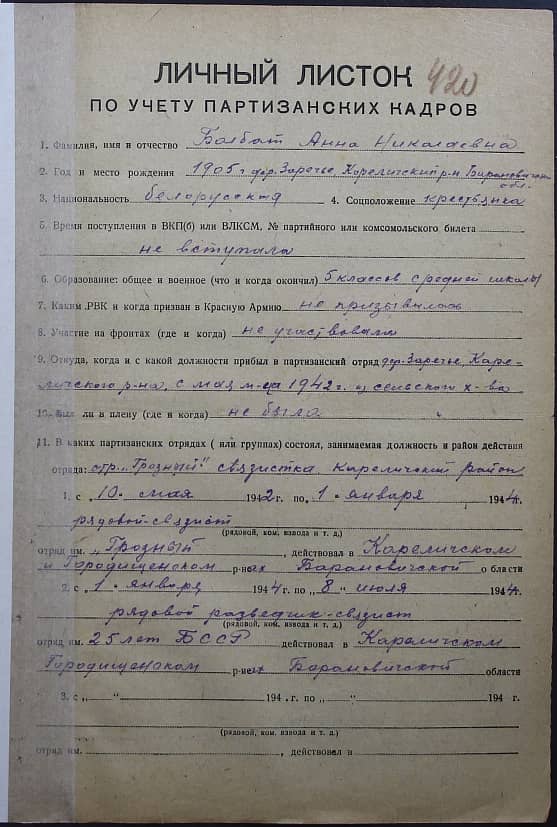 ЛИЧНЫЙ ЛИСТОК 420
ПО УЧЕТУ ПАРТИЗАНСКИХ КАДРОВ
1. Фамилия, имя и отчество Болбат Анна Николаевна
2. Год и место рождения 1905 г дер. Заречье, Кореличский р-н Барановичской
обл.
3. Национальность белорусска 4. Соцположение крестьянка
5. Время поступления в ВКП(б) или ВЛКСМ, № партийного или комсомольского билета
не вступала
6. Образование: общее и военное (что и когда окончил) 5 классов средней школы
7. Каким РВК и когда призван в Красную Армию не призывалась
8. Участие на фронтах (где и когда) не участвовала
9. Откуда, когда и с какой должности прибыл в партизанский отряд дер. Заречье, Каре-
личского р-на, с мая м-ца 1942 г. из сельского х-ва
10. Был ли в плену (где и когда) не была
11. В каких партизанских отрядах ( или группах) состоял, занимаемая должность и район действия
отряда: отр. „Грозный" связистка Кареличский район
1. с „10 . мая 1942 г. по „1 . января 1944.
рядовой-связист
(рядовой, ком. взвода и т. д.)
отряд им. „Грозный , действовал в Кареличском
и Городищенском р-нах Барановичской области
2. с „1 . января 1944 г. по „8 " июля 1944.
рядовой разведчик-связист
(рядовой, ком. взвода и т. д.)
отряд им. 25 лет БССР действовал в Кареличском
Городищенском р-нах Барановичской области
3. с „ " 194 . г. по „ " 194 г.
(рядовой, ком. взвода и т. д.)
отряд им. , действовал в